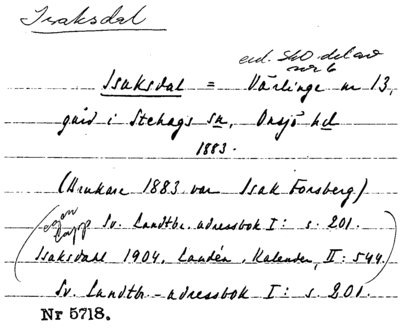 Isaksdal
enl. SkO del av
nr 6
Isaksdal = Värlinge nr 13,
gård i Stehags sn, Onsjö hd
1883.
(Brukare 1883 var Isak Forsberg.)
egen lapp
Sv. Landtbr. adressbok I: s. 201.
Isaksdahl 1904. Landén, Kalender, II: 544
Sv. Landtbr.-adressbok I: s. 201.
Nr 5718.